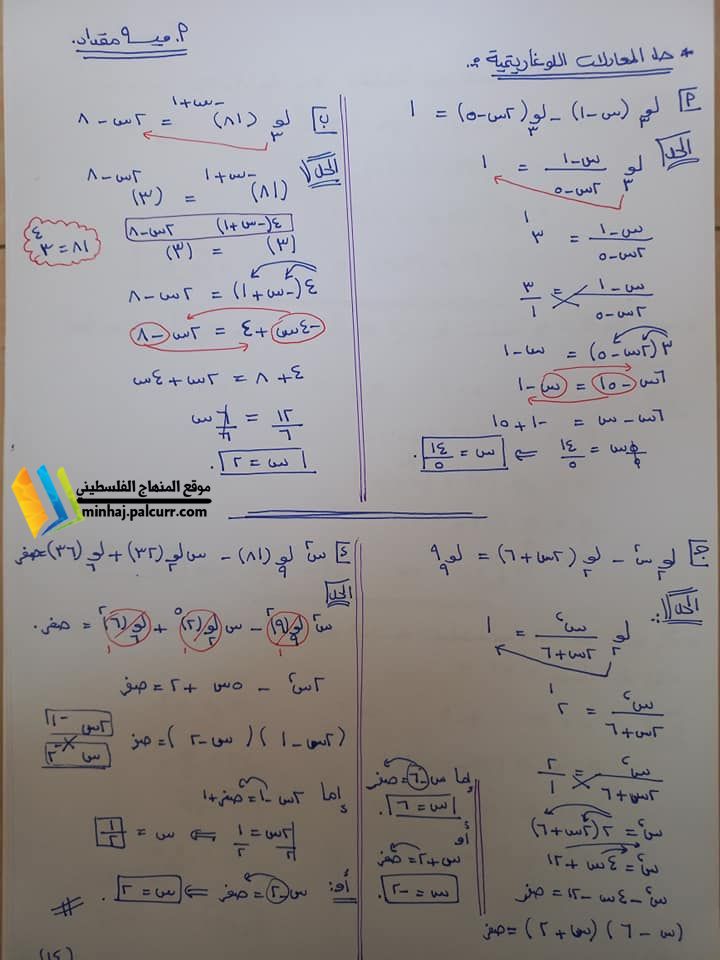 م. مية مقداد.
* حل المعادلات اللوغاريتمية :-
أ] لو٣ (س-١) - لو٣ (٢س-٥) = ١
الحل
لو٣ س-١/٢س-٥ = ١
س-١/٢س-٥ = ٣^١
س-١/٢س-٥ = ٣/١
٣(٢س-٥) = س-١
٦س-١٥ = س-١
٦س-س = -١+١٥
٥س/٥ = ١٤/٥ ⇐ س = ١٤/٥.
ب] لو٣ (٨١)^(-س+١) = ٢س-٨
الحل
(٨١)^(-س+١) = (٣)^(٢س-٨)
(٣)^(٤(-س+١)) = (٣)^(٢س-٨)
٨١ = ٣^٤
٤(-س+١) = ٢س-٨
-٤س+٤ = ٢س-٨
٤+٨ = ٢س+٤س
١٢/٦ = ٦س/٦
س = ٢.
موقع المنهاج الفلسطيني
minhaj.palcurr.com
ج] لو٢ س^٢ - لو٢ (٢س+٦) = لو٩ ٩
الحل:
لو٢ س^٢/٢س+٦ = ١
س^٢/٢س+٦ = ٢^١
س^٢/٢س+٦ = ٢/١
س^٢ = ٢(٢س+٦)
س^٢ = ٤س+١٢
س^٢-٤س-١٢ = صفر
(س-٦)(س+٢) = صفر
إما س-٦ = صفر
س = ٦.
أو
س+٢ = صفر
س = -٢.
٤] س^٢ لو٩ (٨١) - س لو٢ (٣٢) + لو٦ (٣٦) = صفر
الحل
س^٢ لو٩ (٩)^٢ - س لو٢ (٢)^٥ + لو٦ (٦)^٢ = صفر.
١ ١ ١
٢س^٢ - ٥س + ٢ = صفر
(٢س-١)(س-٢) = صفر
٢س -١
س -٢
إما ٢س-١ = صفر+١
٢س/٢ = ١/٢ ⇐ س = ١/٢
أو: س-٢ = صفر ⇐ س = ٢.
#
(١٤)